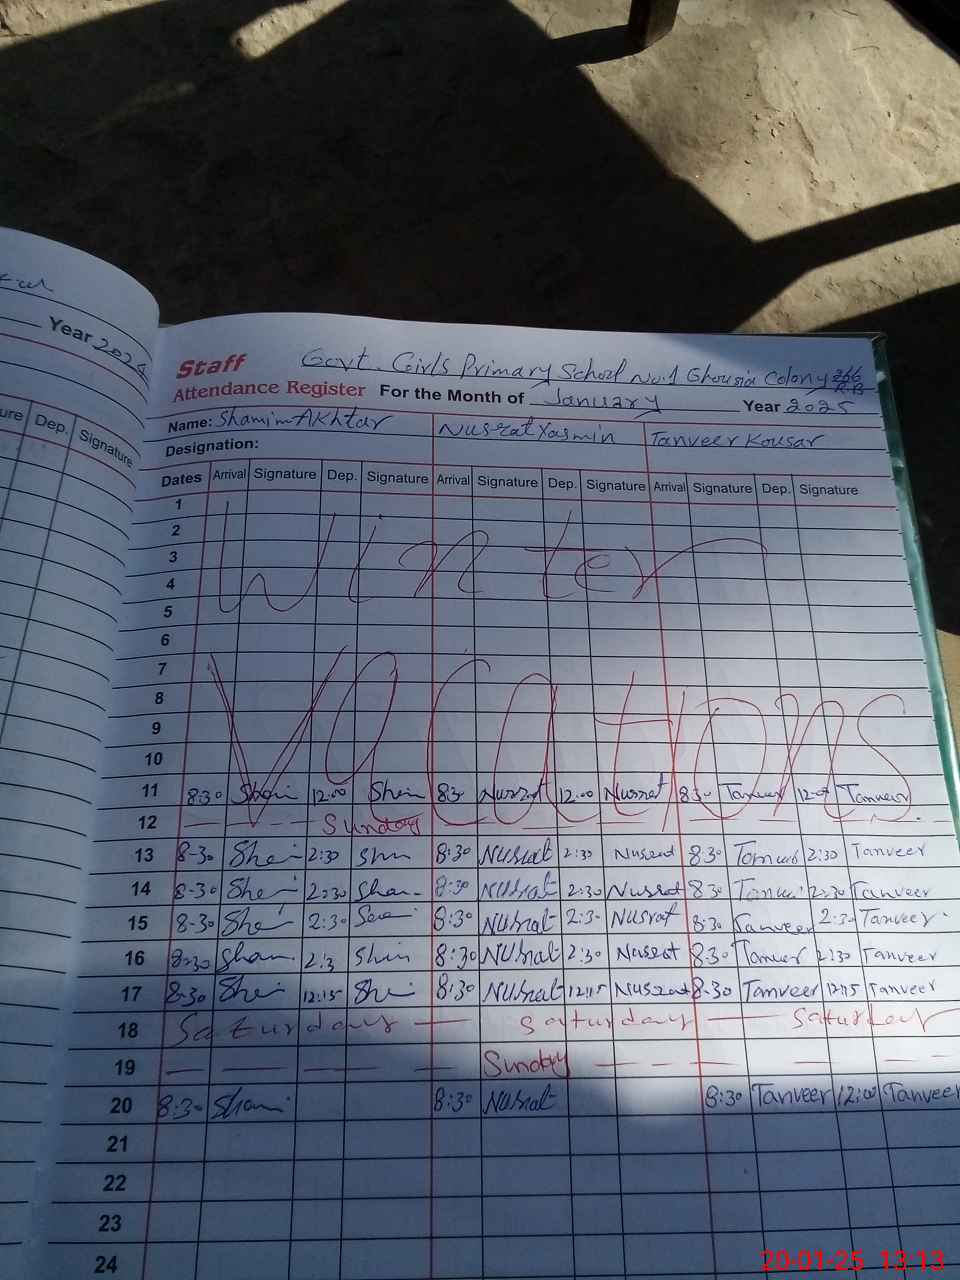 Year 2024
Dep. Signature
Staff Govt. Girls Primary School No.1 Ghousia Colony 266 R.B
Attendance Register For the Month of January Year 2025
Name: Shamim Akhtar Nusrat Yasmin Tanveer Kousar
Designation:
Dates Arrival Signature Dep. Signature Arrival Signature Dep. Signature Arrival Signature Dep. Signature
1
2
3
Winter
4
5
6
7
8
Vacations
9
10
11 8:30 12:00 83 Nusrat 12:00 Nusrat 83 Tanveer 12:0 Tanveer
12 Sunday
13 8-30 2:30 8:30 Nusrat 2:30 Nusrat 830 2:30 Tanveer
14 8-30 2:30 8:30 Nusrat 2:30 Nusrat 830 2:30 Tanveer
15 8-30 2:30 8:30 Nusrat 2:3 Nusrat 8:30 Tanveer 2:30 Tanveer
16 8:30 2:3 8:30 Nusrat 2:30 Nusrat 8:30 Tanveer 2:30 Tanveer
17 8-30 12:15 8:30 Nusrat 12:15 Nusrat 8-30 Tanveer 12:15 Tanveer
18 Saturday Saturday Saturday
19 Sunday
20 8:30 8:30 Nusrat 8:30 Tanveer 12:00 Tanveer
21
22
23
24
20-01-25 13:13